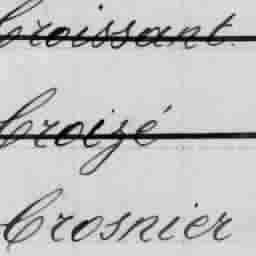 Croissant.
Croizé
Crosnier